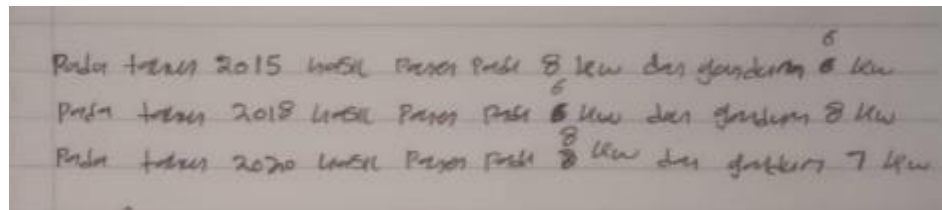 Pada tahun 2015 hasil Panen Padi 8 kw dan gandum 6 kw
Pada tahun 2018 hasil Panen Padi 6 kw dan gandum 8 kw
Pada tahun 2020 hasil Panen Padi 8 kw dan gandum 7 kw